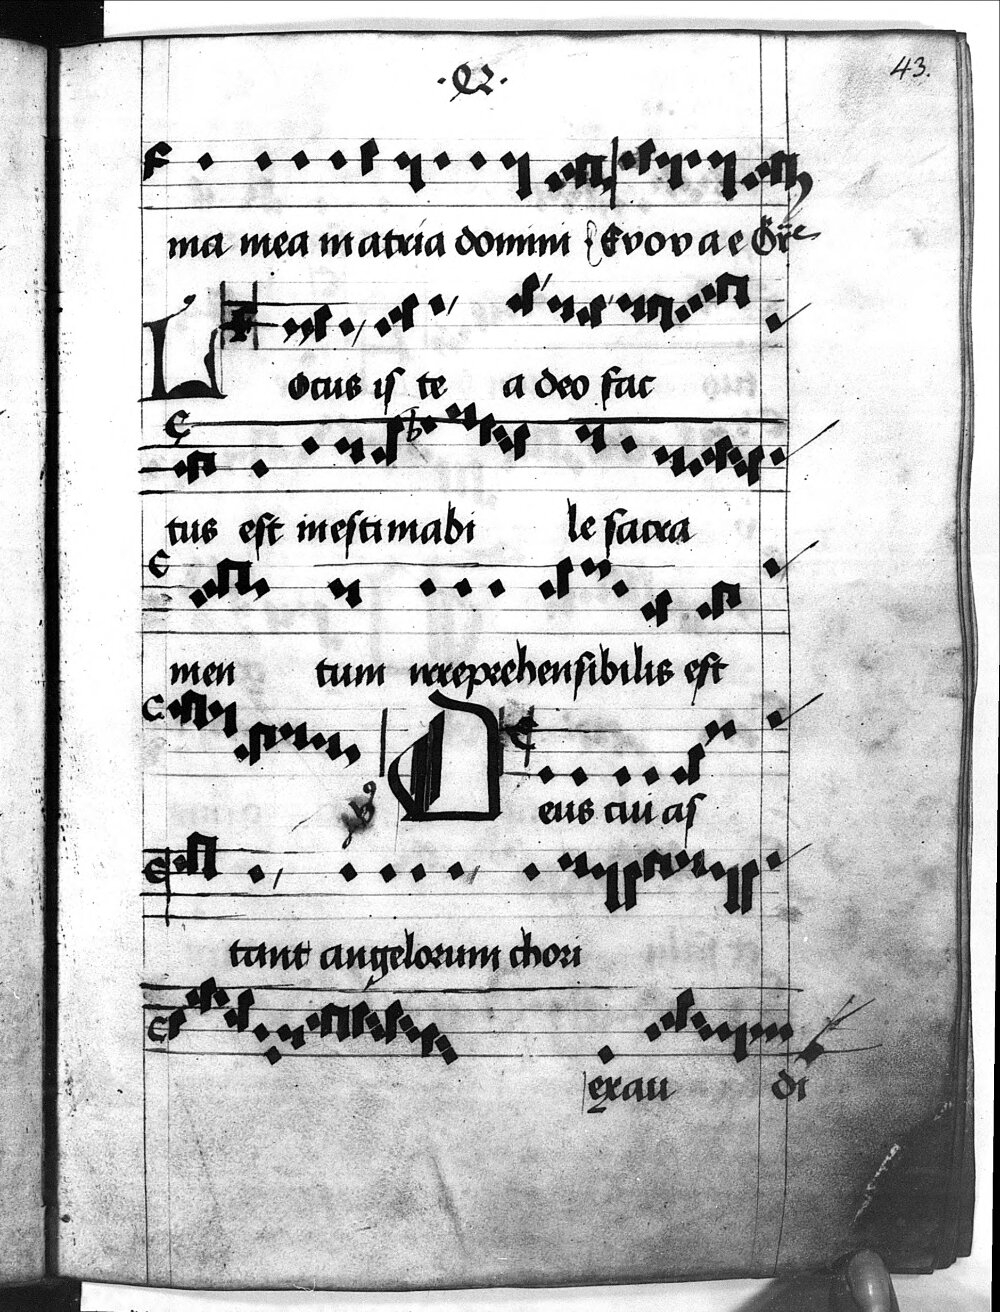 43.
ma mea in atria domini Evovae Gre
Locus iste a deo fac
tus est inestimabi le sacra
men tum irreprehensibilis est
Deus cui as
tant angelorum chori
exau di